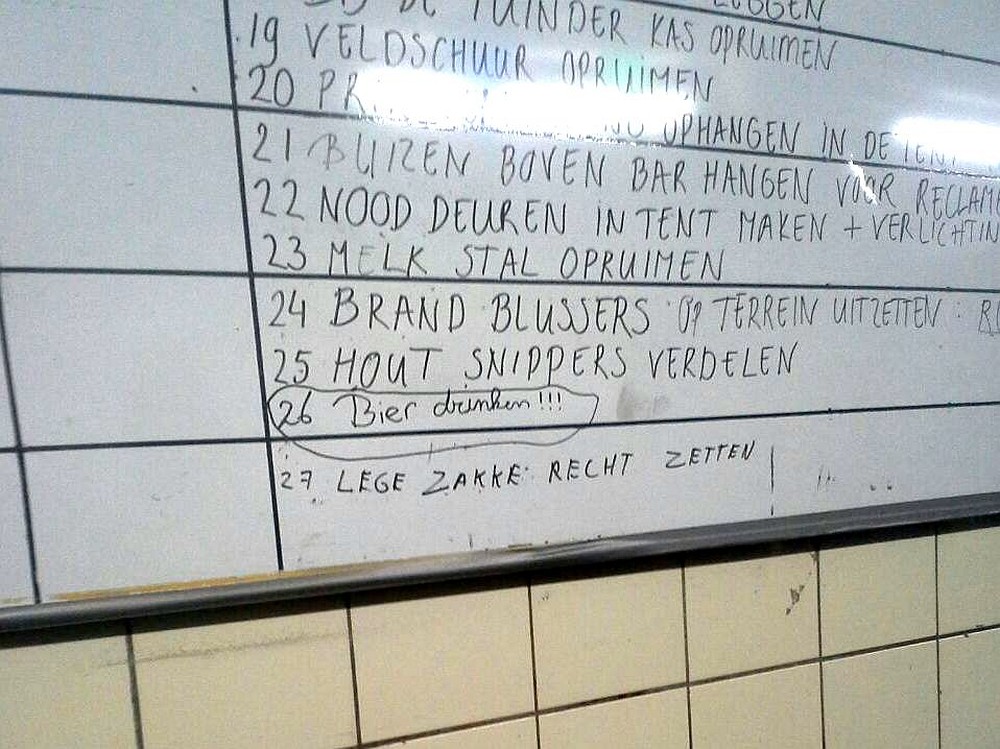 LEGGEN
DE TUINDER KAS OPRUIMEN
19 VELDSCHUUR OPRUIMEN
20 OPHANGEN IN DE TENT
21 BUIZEN BOVEN BAR HANGEN VOOR RECLAME
22 NOOD DEUREN IN TENT MAKEN + VERLICHTIN
23 MELK STAL OPRUIMEN
24 BRAND BLUSSERS OP TERREIN UITZETTEN :
25 HOUT SNIPPERS VERDELEN
26 Bier drinken!!!
27 LEGE ZAKKE RECHT ZETTEN